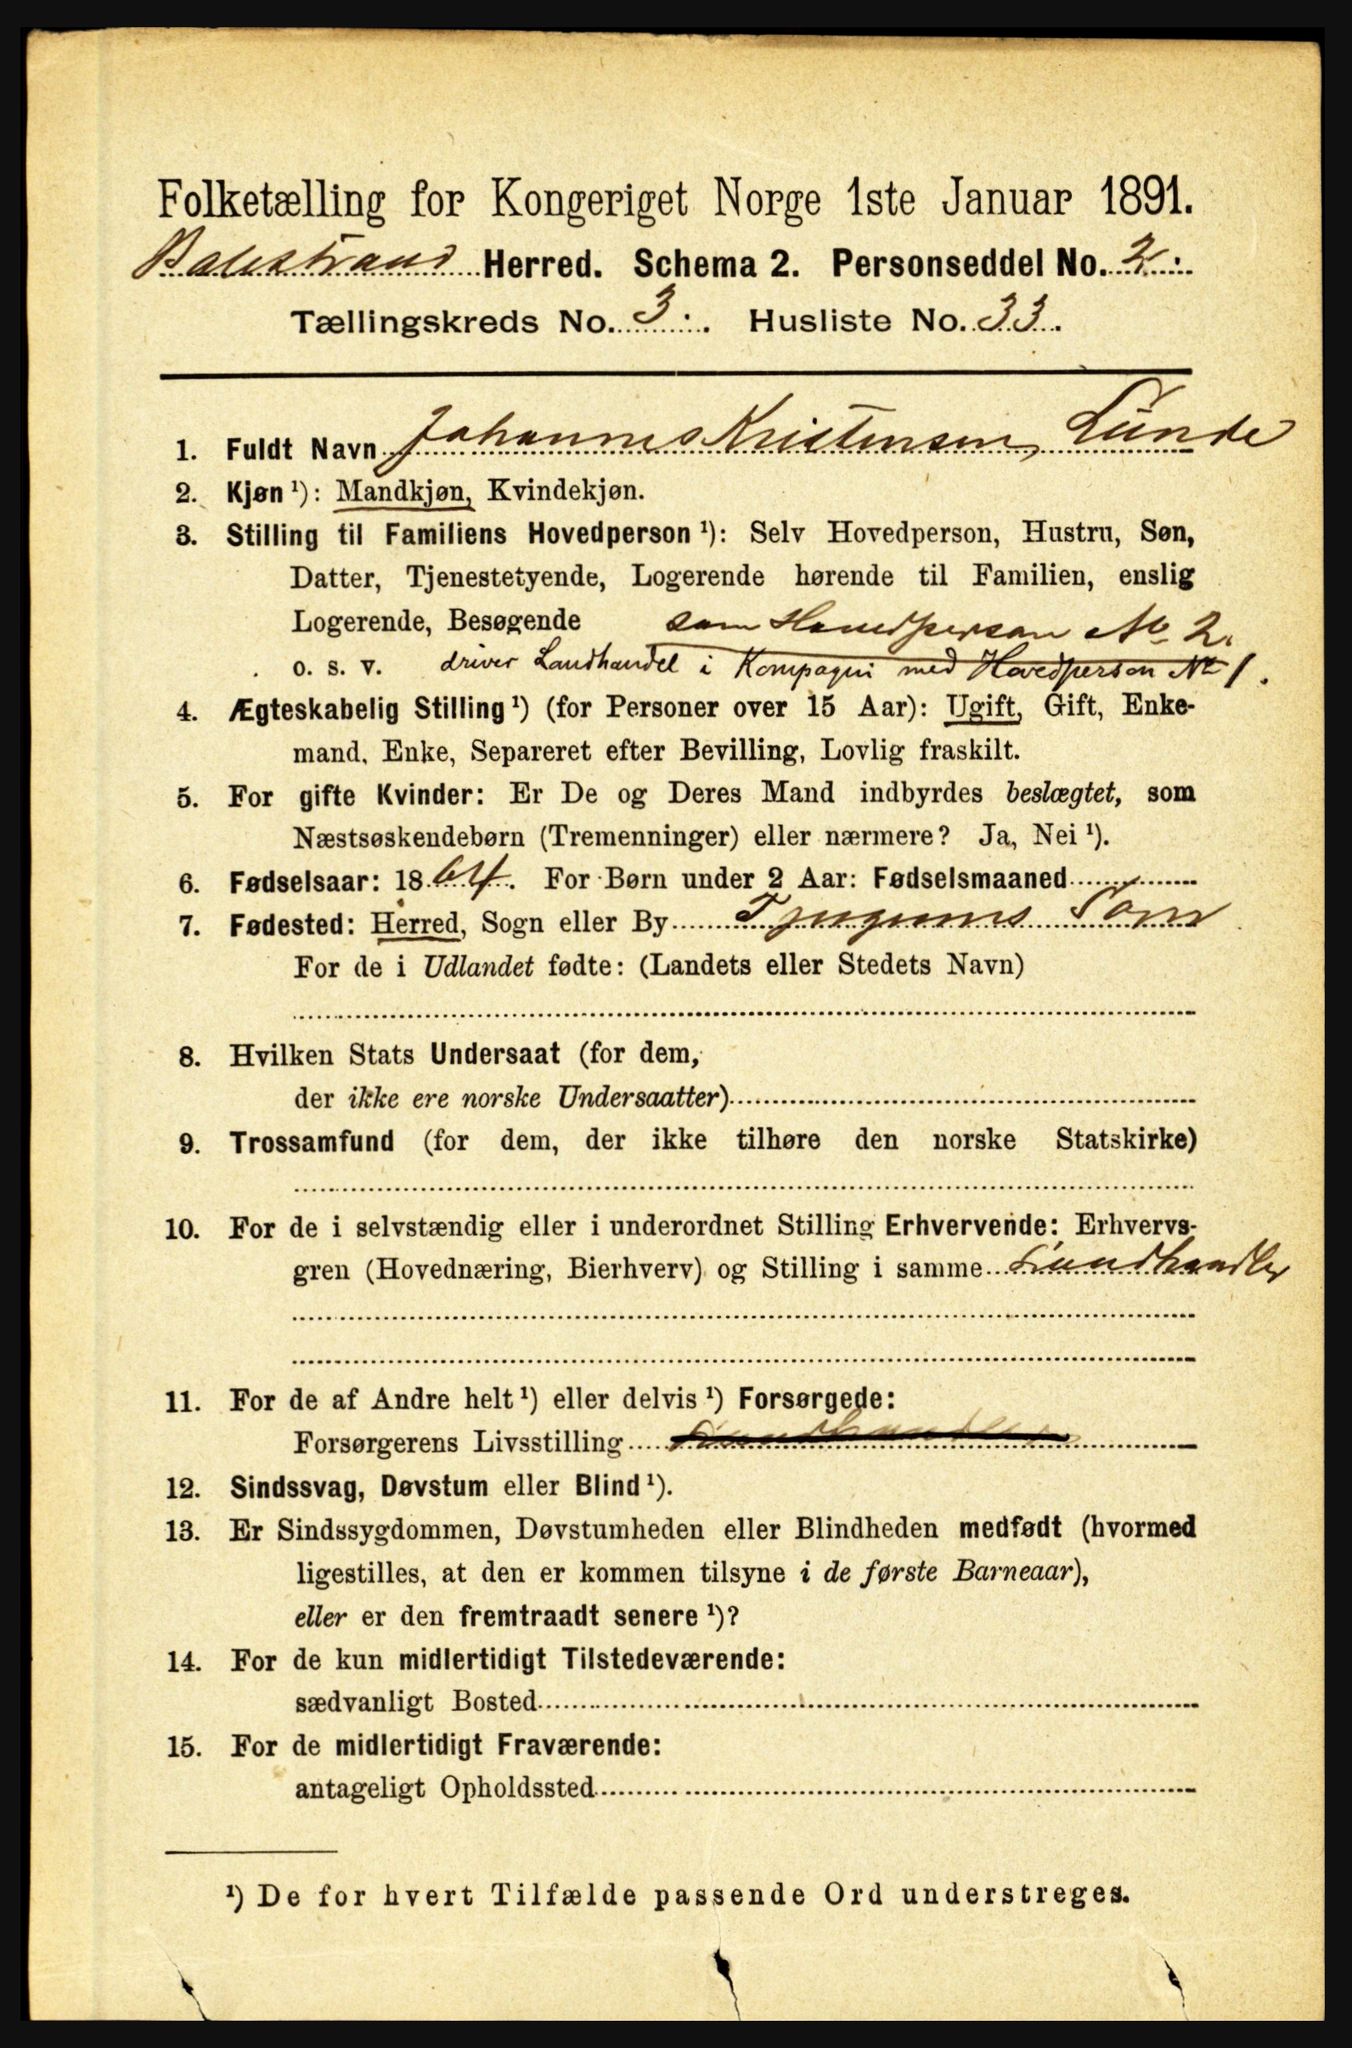 Folketælling for Kongeriget Norge 1ste Januar 1891.
Balestrand Herred. Schema 2. Personseddel No. 2.
Tællingskreds No. 3. Husliste No. 33.
1. Fuldt Navn Johannes Kristensen Lunde
2. Kjøn ¹): Mandkjøn, Kvindekjøn.
3. Stilling til Familiens Hovedperson ¹): Selv Hovedperson, Hustru, Søn,
Datter, Tjenestetyende, Logerende hørende til Familien, enslig
Logerende, Besøgende som Hovedperson No 2.
o. s. v. driver Landhandel i Kompagni med Hovedperson No 1.
4. Ægteskabelig Stilling ¹) (for Personer over 15 Aar): Ugift, Gift, Enke-
mand, Enke, Separeret efter Bevilling, Lovlig fraskilt.
5. For gifte Kvinder: Er De og Deres Mand indbyrdes beslægtet, som
Næstsøskendebørn (Tremenninger) eller nærmere? Ja, Nei ¹).
6. Fødselsaar: 1864. For Børn under 2 Aar: Fødselsmaaned
7. Fødested: Herred, Sogn eller By
For de i Udlandet fødte: (Landets eller Stedets Navn)
8. Hvilken Stats Undersaat (for dem,
der ikke ere norske Undersaatter)
9. Trossamfund (for dem, der ikke tilhøre den norske Statskirke)
10. For de i selvstændig eller i underordnet Stilling Erhvervende: Erhvervs-
gren (Hovednæring, Bierhverv) og Stilling i samme Landhandler
11. For de af Andre helt ¹) eller delvis ¹) Forsørgede:
Forsørgerens Livsstilling Landhandler
12. Sindssvag, Døvstum eller Blind ¹).
13. Er Sindssygdommen, Døvstumheden eller Blindheden medfødt (hvormed
ligestilles, at den er kommen tilsyne i de første Barneaar),
eller er den fremtraadt senere ¹)?
14. For de kun midlertidigt Tilstedeværende:
sædvanligt Bosted
15. For de midlertidigt Fraværende:
antageligt Opholdssted
¹) De for hvert Tilfælde passende Ord understreges.